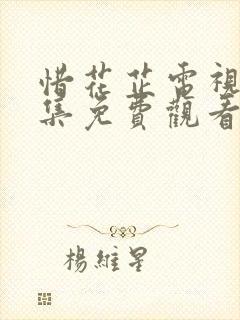 惜花芷電視
集免費觀看
楊維星